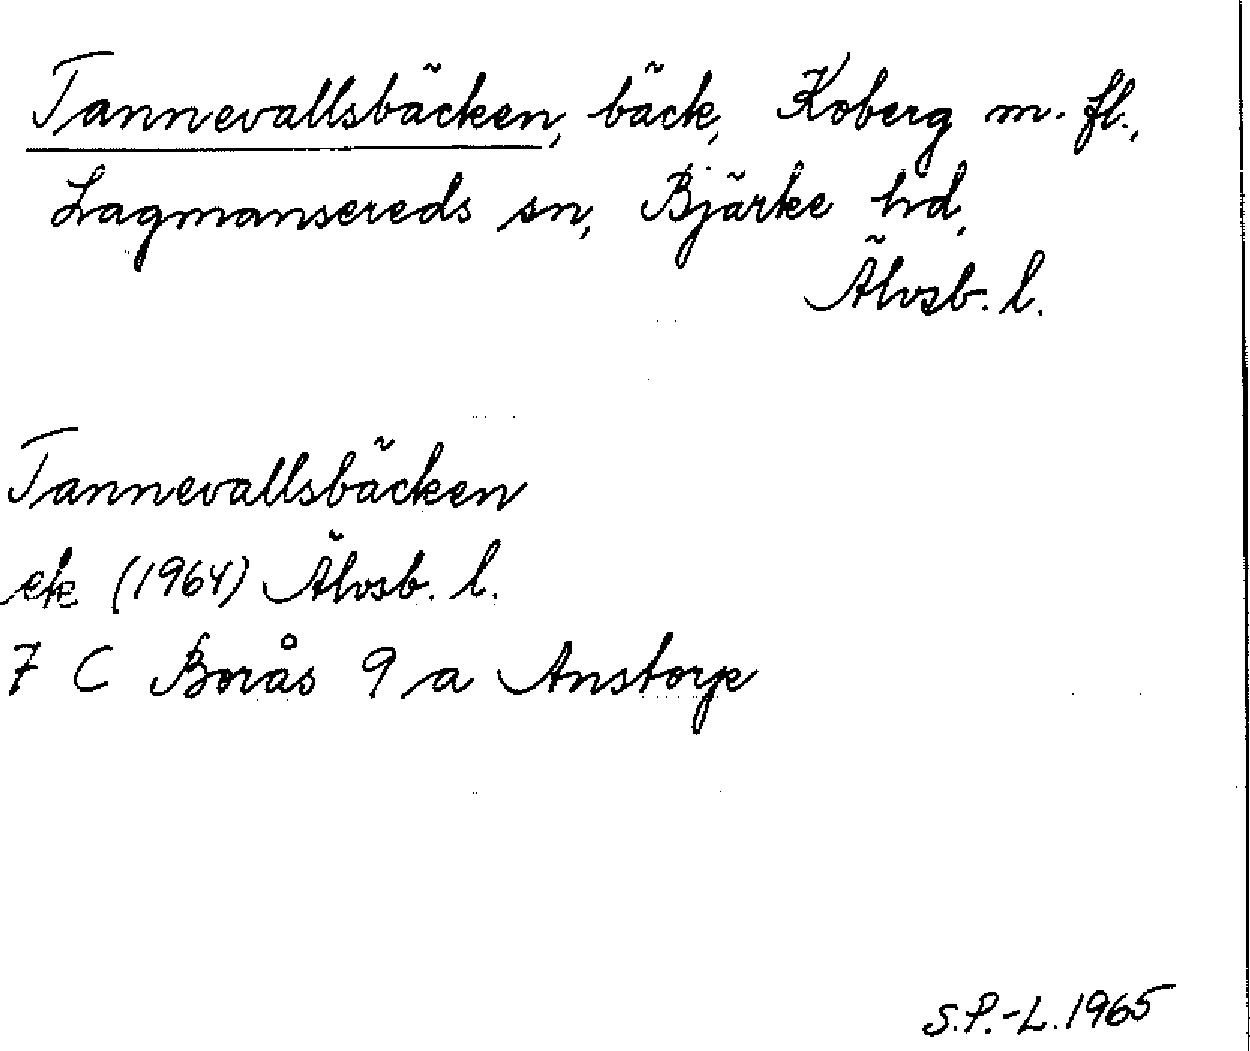 Tannevallsbäcken, bäck, Koberg m. fl.,
Lagmansereds sn, Bjärke hd,
Älvsb. l.
Tannevallsbäcken
ek (1964) Älvsb. l.
7 C Borås 9 a Anstorp
S.P.-L. 1965